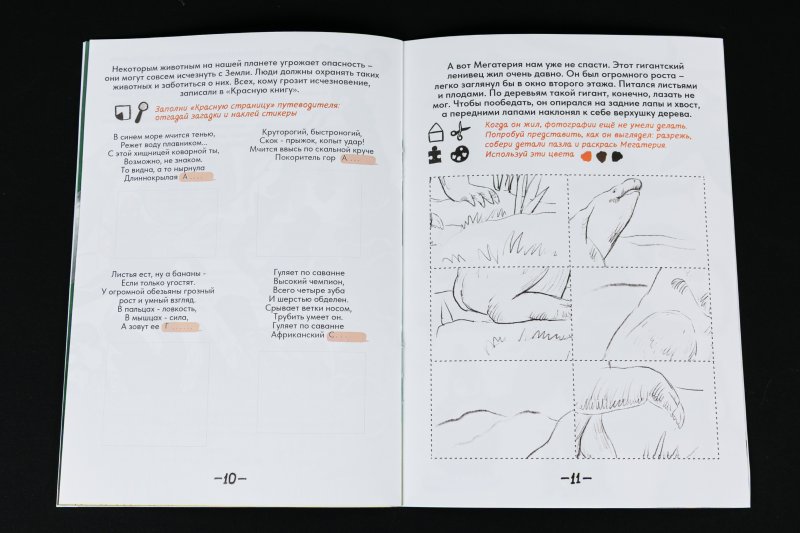 Некоторым животным на нашей планете угрожает опасность –
они могут совсем исчезнуть с Земли. Люди должны охранять таких
животных и заботиться о них. Всех, кому грозит исчезновение,
записали в «Красную книгу».
Заполни «Красную страницу» путеводителя:
отгадай загадки и наклей стикеры
В синем море мчится тенью,
Режет воду плавником...
С этой хищницей коварной ты,
Возможно, не знаком.
То видна, а то нырнула
Длиннокрылая А.....
Круторогий, быстроногий,
Скок - прыжок, копыт удар!
Мчится ввысь по скальной круче
Покоритель гор А....
Листья ест, ну а бананы -
Если только угостят.
У огромной обезьяны грозный
рост и умный взгляд.
В пальцах - ловкость,
В мышцах - сила,
А зовут ее Г......
Гуляет по саванне
Высокий чемпион,
Всего четыре зуба
И шерстью обделен.
Срывает ветки носом,
Трубить умеет он.
Гуляет по саванне
Африканский С....
–10–
А вот Мегатерия нам уже не спасти. Этот гигантский
ленивец жил очень давно. Он был огромного роста –
легко заглянул бы в окно второго этажа. Питался листьями
и плодами. По деревьям такой гигант, конечно, лазать не
мог. Чтобы пообедать, он опирался на задние лапы и хвост,
а передними лапами наклонял к себе верхушку дерева.
Когда он жил, фотографии ещё не умели делать.
Попробуй представить, как он выглядел: разрежь,
собери детали пазла и раскрась Мегатерия.
Используй эти цвета
–11–